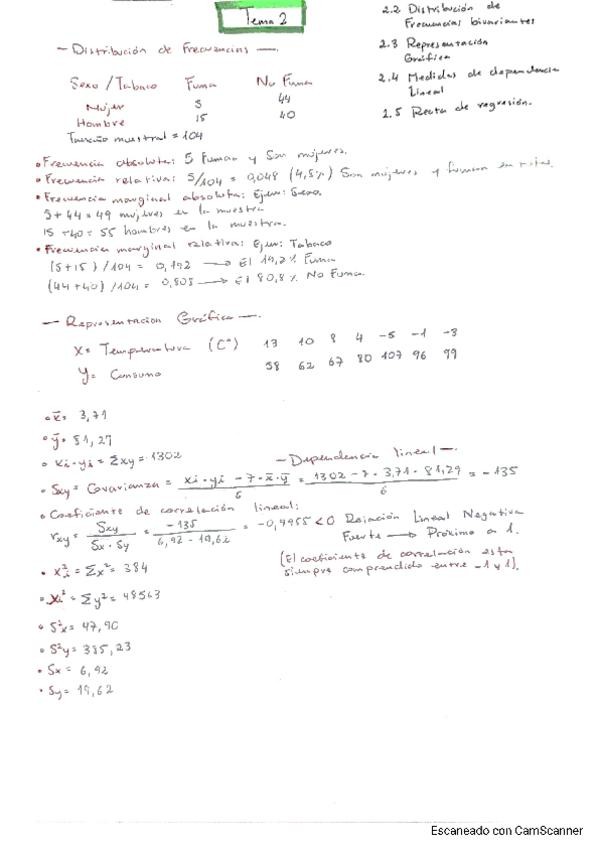 Tema 2
2.2 Distribución de
Frecuencias bivariantes
2.3 Representación
Gráfica
2.4 Medidas de dependencia
Lineal
2.5 Recta de regresión.
— Distribución de Frecuencias —.
Sexo / Tabaco Fuma No Fuma
Mujer 5 44
Hombre 15 40
Tamaño muestral = 104
• Frecuencia absoluta: 5 Fuman y Son mujeres.
• Frecuencia relativa: 5/104 = 0,048 (4,8%) Son mujeres y fuman
• Frecuencia marginal absoluta: Ejem: Sexo.
5+44 = 49 mujeres en la muestra
15+40 = 55 hombres en la muestra.
• Frecuencia marginal relativa: Ejem: Tabaco
(5+15) /104 = 0,192 → El 19,2% Fuma
(44+40) /104 = 0,808 → El 80,8% No Fuma.
— Representación Gráfica —.
X = Temperatura (Cº) 13 10 8 4 -5 -1 -3
Y = Consumo 58 62 67 80 107 96 99
• x̄ = 3,71
• ȳ = 81,29
• xi · yi = Σxy = 1302
— Dependencia lineal —.
• Sxy = Covarianza = xi · yi - 7 · x̄ · ȳ / 6 = 1302 - 7 · 3,71 · 81,29 / 6 = -135
• Coeficiente de correlación lineal:
rxy = Sxy / Sx · Sy = -135 / 6,92 · 19,62 = -0,9955 < 0 Relación Lineal Negativa
Fuerte → Próximo a 1.
(El coeficiente de correlación esta
siempre comprendido entre -1 y 1).
• xi² = Σx² = 384
• yi² = Σy² = 48563
• S²x = 47,90
• S²y = 385,23
• Sx = 6,92
• Sy = 19,62
Escaneado con CamScanner